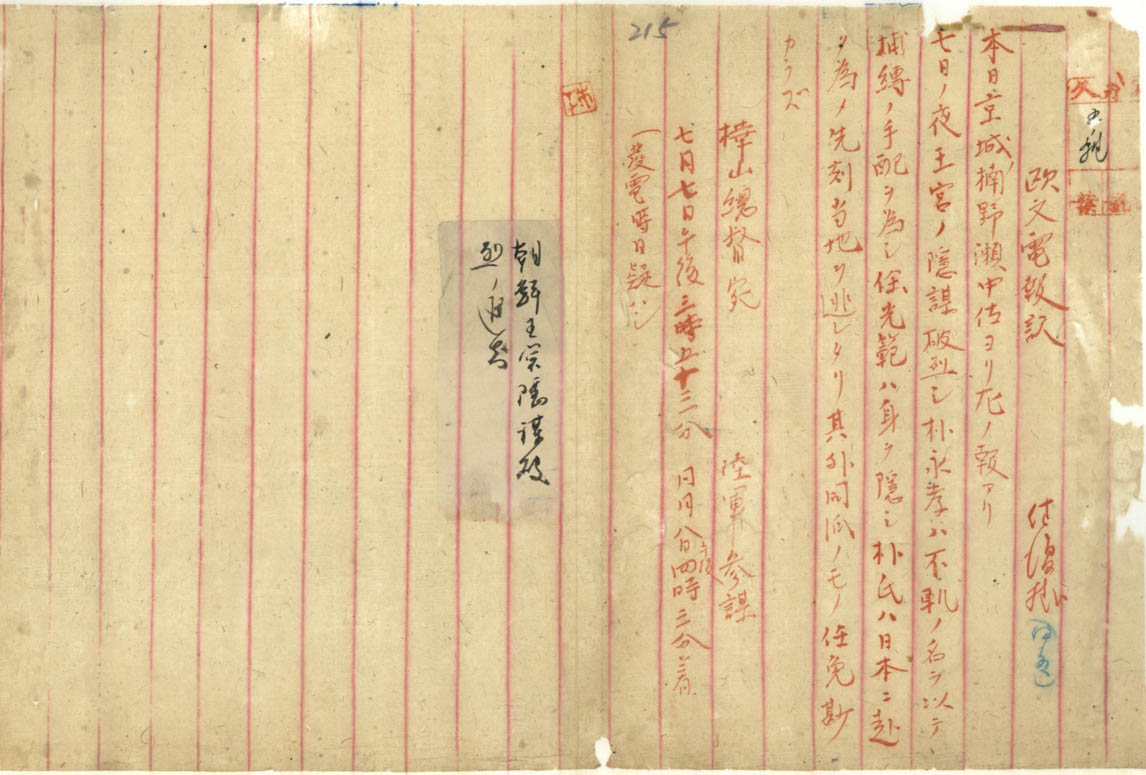 欧文電報訳
本日京城楠野瀬中佐ヨリ左ノ報アリ
七日ノ夜王宮ノ隠謀破烈シ朴永孝ハ不軌ノ名ヲ以テ
捕縛ノ手配ヲ為シ保光範ハ身ヲ隠シ朴氏ハ日本ニ赴
ク為メ先刻当地ヲ逃レタリ其外同派ノモノ任免尠
カラズ
樺山総督宛 陸軍参謀
七月七日午後三時五十三分 同月八日午後四時三分着
一発電時日疑ハシ
215
朝鮮王宮隠謀破
烈ノ通知